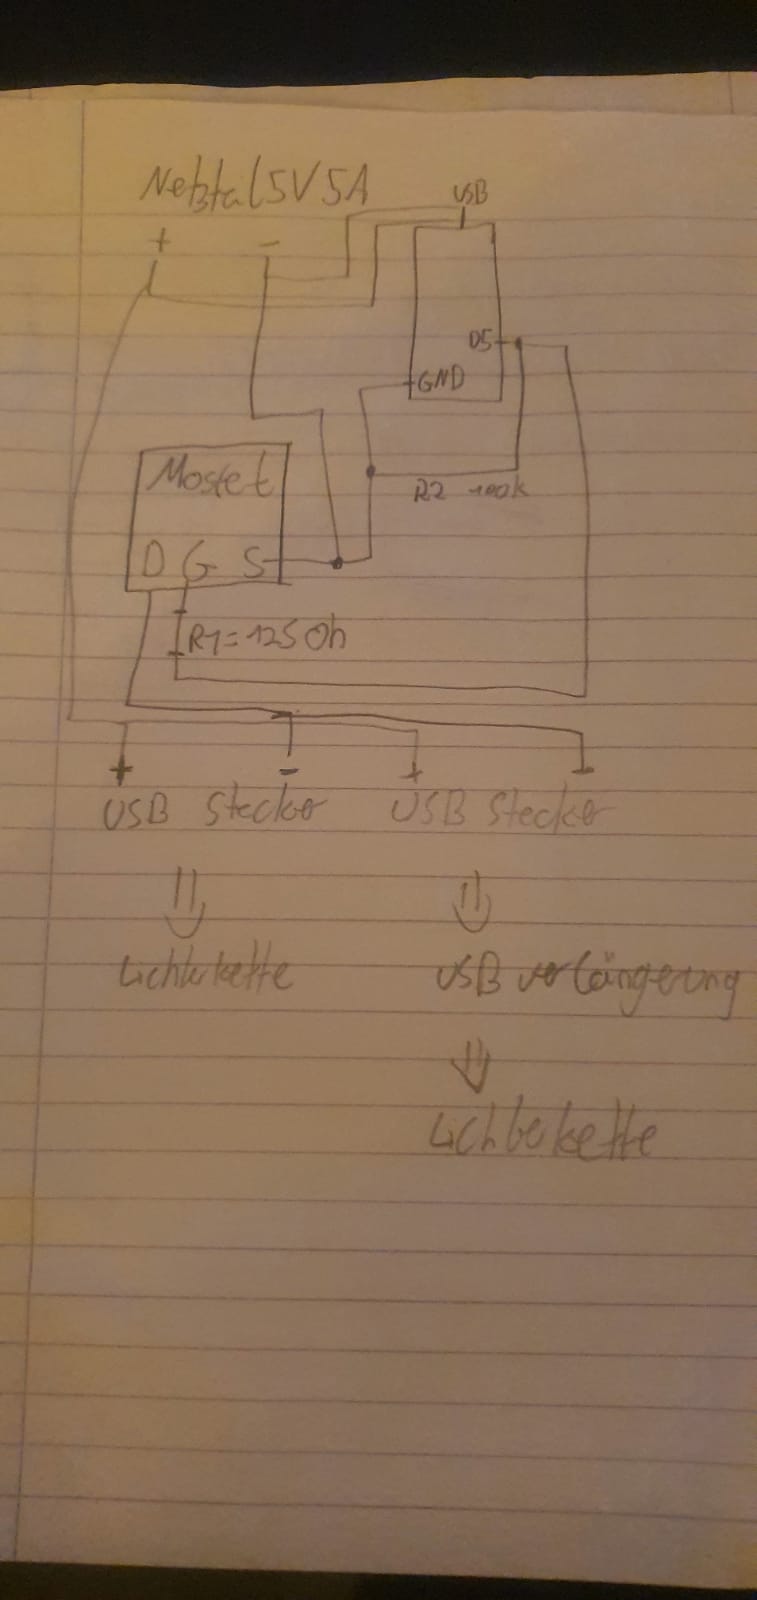 Netzteil 5V 5A
USB
+ -
D5
GND
Mosfet
R2 100k
D G S
R1=125 Oh
+ - + -
USB Stecker USB Stecker
Lichterkette USB verlängerung
Lichterkette